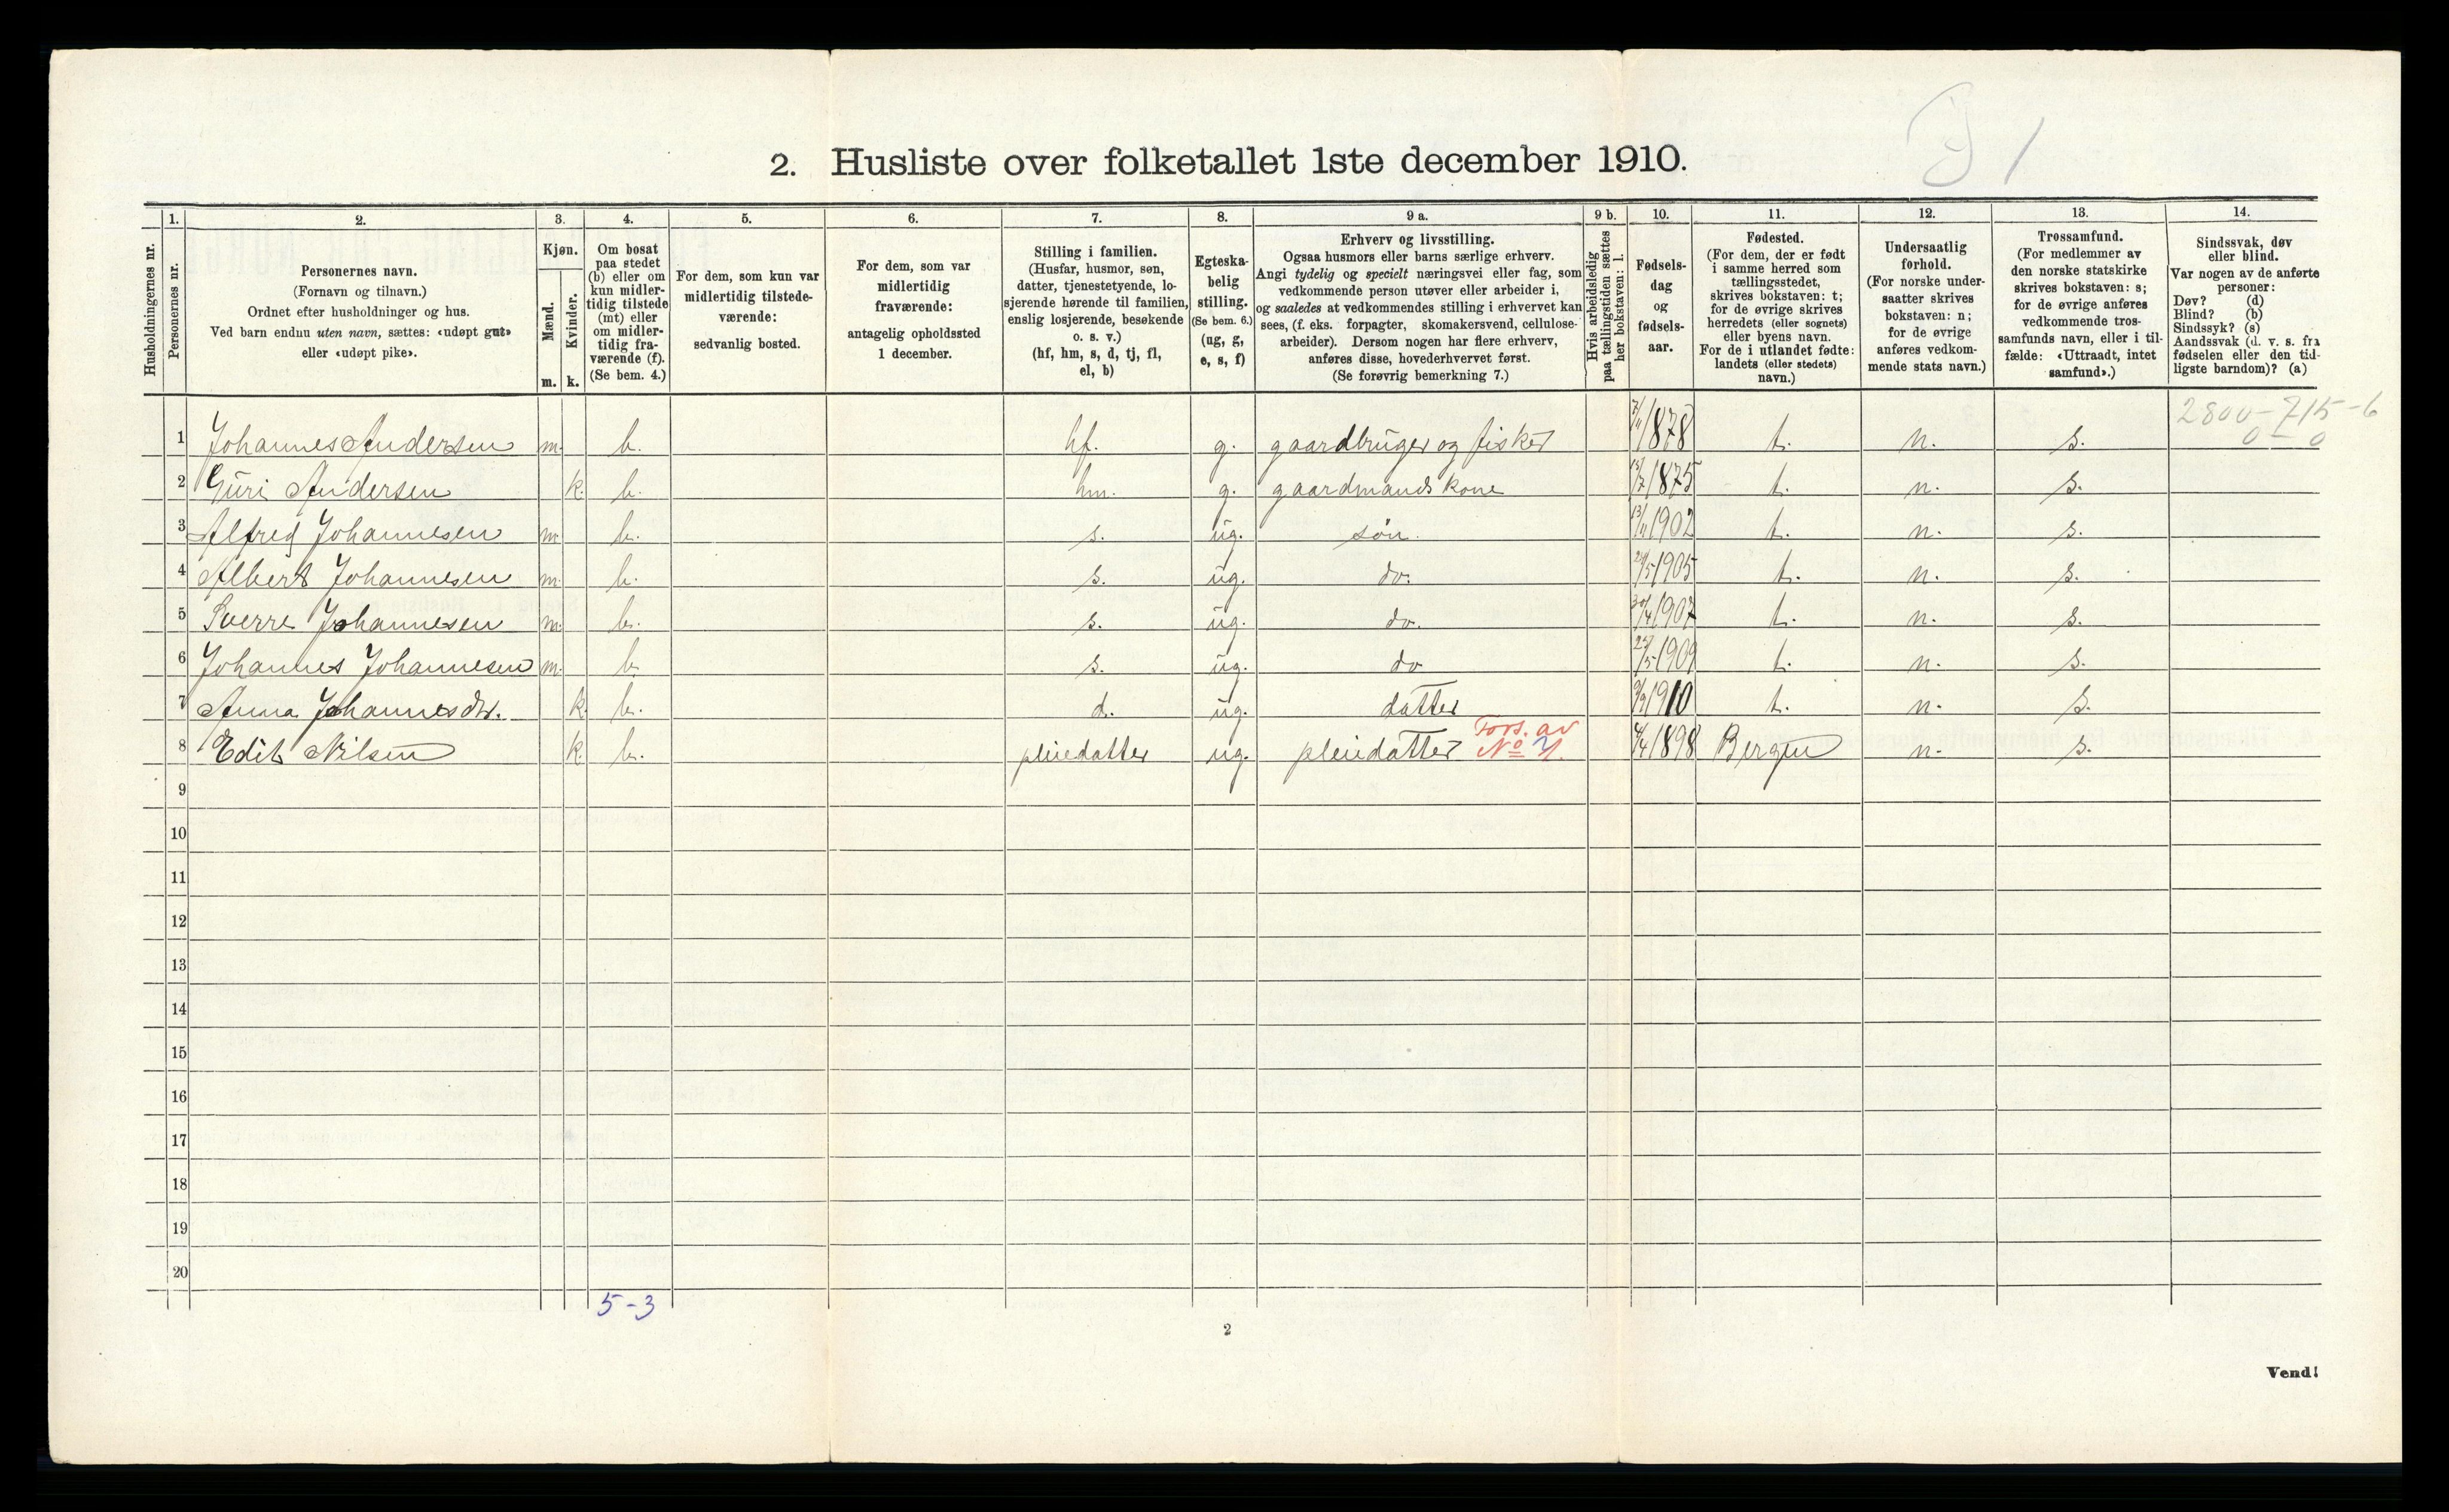 2. Husliste over folketallet 1ste december 1910.
1. 2. 3. 4. 5. 6. 7. 8. 9 a. 9 b. 10. 11. 12. 13. 14.
Husholdningernes nr.
Personernes nr.
Personernes navn.
(Fornavn og tilnavn.)
Ordnet efter husholdninger og hus.
Ved barn endnu uten navn, sættes: «udøpt gut»
eller «udøpt pike».
Kjøn.
Mænd.
Kvinder.
m. k.
Om bosat
paa stedet
(b) eller om
kun midler-
tidig tilstede
(mt) eller
om midler-
tidig fra-
værende (f).
(Se bem. 4.)
For dem, som kun var
midlertidig tilstede-
værende:
sedvanlig bosted.
For dem, som var
midlertidig
fraværende:
antagelig opholdssted
1 december.
Stilling i familien.
(Husfar, husmor, søn,
datter, tjenestetyende, lo-
sjerende hørende til familien,
enslig losjerende, besøkende
o. s. v.)
(hf, hm, s, d, tj, fl,
el, b)
Egteska-
belig
stilling.
(Se bem. 6.)
(ug, g,
e, s, f)
Erhverv og livsstilling.
Ogsaa husmors eller barns særlige erhverv.
Angi tydelig og specielt næringsvei eller fag, som
vedkommende person utøver eller arbeider i,
og saaledes at vedkommendes stilling i erhvervet kan
sees, (f. eks. forpagter, skomakersvend, cellulose-
arbeider). Dersom nogen har flere erhverv,
anføres disse, hovederhvervet først.
(Se forøvrig bemerkning 7.)
Hvis arbeidsledig
paa tællingstiden sættes
her bokstaven: l.
Fødsels-
dag
og
fødsels-
aar.
Fødested.
(For dem, der er født
i samme herred som
tællingsstedet,
skrives bokstaven: t;
for de øvrige skrives
herredets (eller sognets)
eller byens navn.
For de i utlandet fødte:
landets (eller stedets)
navn.)
Undersaatlig
forhold.
(For norske under-
saatter skrives
bokstaven: n;
for de øvrige
anføres vedkom-
mende stats navn.)
Trossamfund.
(For medlemmer av
den norske statskirke
skrives bokstaven: s;
for de øvrige anføres
vedkommende tros-
samfunds navn, eller i til-
fælde: «Uttraadt, intet
samfund».)
Sindssvak, døv
eller blind.
Var nogen av de anførte
personer:
Døv? (d)
Blind? (b)
Sindssyk? (s)
Aandssvak (d. v. s. fra
fødselen eller den tid-
ligste barndom)? (a)
2800-715-6
0-0
1 Johannes Andersen m. b. hf. g. gaardbruger og fisker 7/11 1878 t. n. s.
2 Guri Andersen k. b. hm. g. gaardmands kone 15/7 1875 t. n. s.
3 Alfred Johannesen m. b. s. ug. søn. 13/11 1902 t. n. s.
4 Albert Johannesen m. b. s. ug. do. 24/5 1905 t. n. s.
5 Sverre Johannesen m. b. s. ug. do. 30/4 1907 t. n. s.
6 Johannes Johannesen m. b. s. ug. do 1909 t. n. s.
7 Anna Johannesdtr. k. b. d. ug. datter 9/9 1910 t. n. s.
8 Edit Nilsen k. b. pleiedatter ug. pleiedatter Fors. av No 1. 1898 Bergen n. s.
9
10
11
12
13
14
15
16
17
18
19
20
5-3
2
Vend!